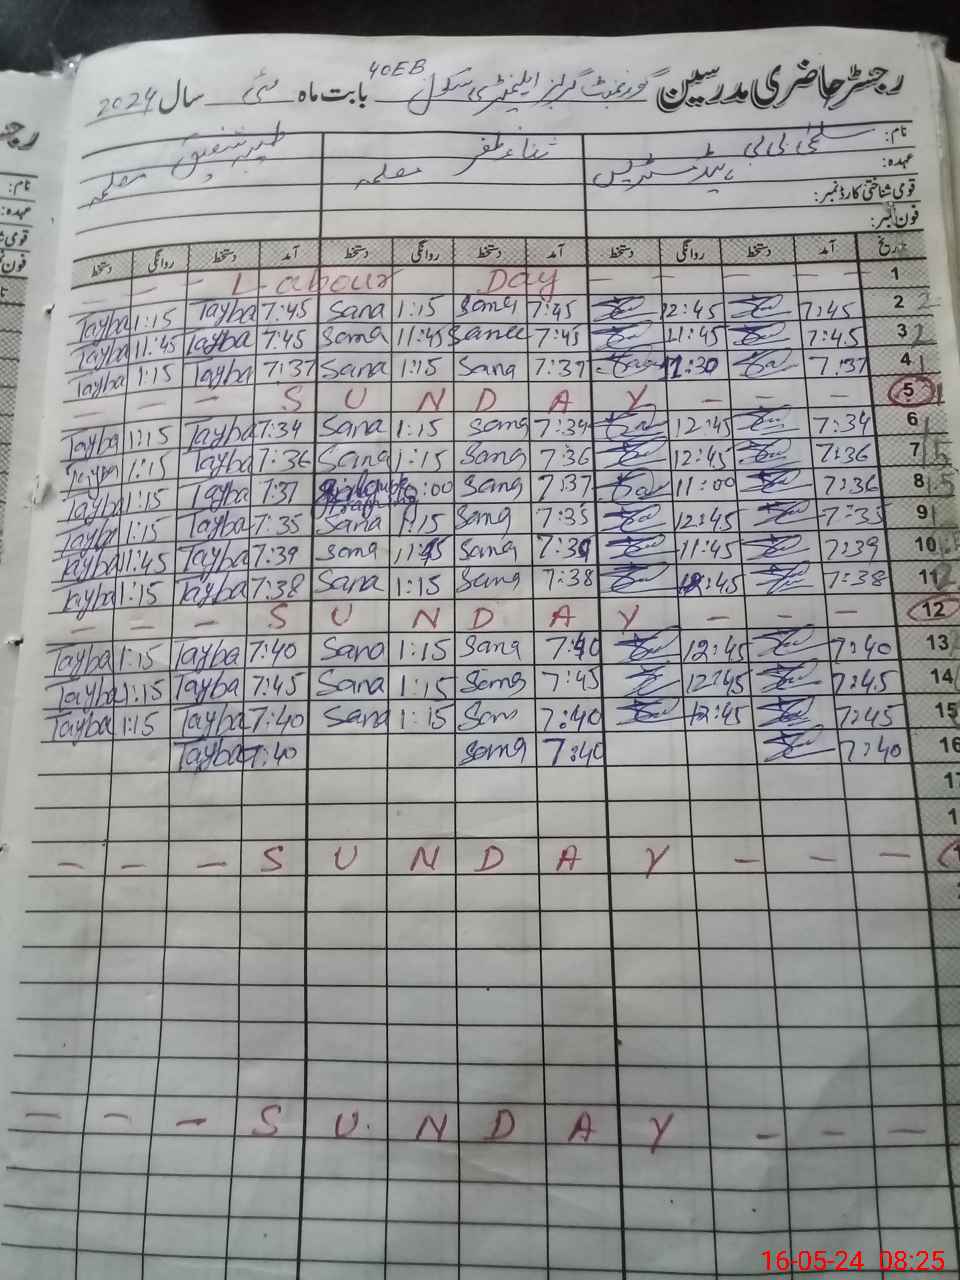 رجسٹر حاضری مدرسین گورنمنٹ گرلز ایلیمنٹری سکول 40EB بابت ماہ مئی سال 2024
نام: سلمیٰ بی بی ثناء ظفر طیبہ شفیق
عہدہ: ہیڈ مسٹریس معلمہ معلمہ
قومی شناختی کارڈ نمبر:
فون نمبر:
تاریخ آمد دستخط روانگی دستخط آمد دستخط روانگی دستخط آمد دستخط روانگی دستخط
— — — Labour Day — — — — 1
Tayba 1:15 Tayba 7:45 Sana 1:15 Sana 7:45 12:45 7:45 2
Tayba 11:45 Tayba 7:45 Sana 11:45 Sana 7:45 11:45 7:45 3
Tayba 1:15 Tayba 7:37 Sana 1:15 Sana 7:37 11:30 7:37 4
— — — S U N D A Y — — — 5
Tayba 1:15 Tayba 7:34 Sana 1:15 Sana 7:34 12:45 7:34 6
Tayba 1:15 Tayba 7:36 Sana 1:15 Sana 7:36 12:45 7:36 7
Tayba 1:15 Tayba 7:37 Sana 7:37 11:00 7:36 8
Tayba 1:15 Tayba 7:35 Sana 1:15 Sana 7:35 12:45 7:35 9
Tayba 11:45 Tayba 7:39 Sana 11:45 Sana 7:39 11:45 7:39 10
Tayba 1:15 Tayba 7:38 Sana 1:15 Sana 7:38 12:45 7:38 11
— — — S U N D A Y — — — 12
Tayba 1:15 Tayba 7:40 Sana 1:15 Sana 7:40 12:45 7:40 13
Tayba 1:15 Tayba 7:45 Sana 1:15 Sana 7:45 12:45 7:45 14
Tayba 1:15 Tayba 7:40 Sana 1:15 Sana 7:40 12:45 7:45 15
Tayba 7:40 Sana 7:40 7:40 16
17
— — — S U N D A Y — — —
— — — S U N D A Y — — —
16-05-24 08:25